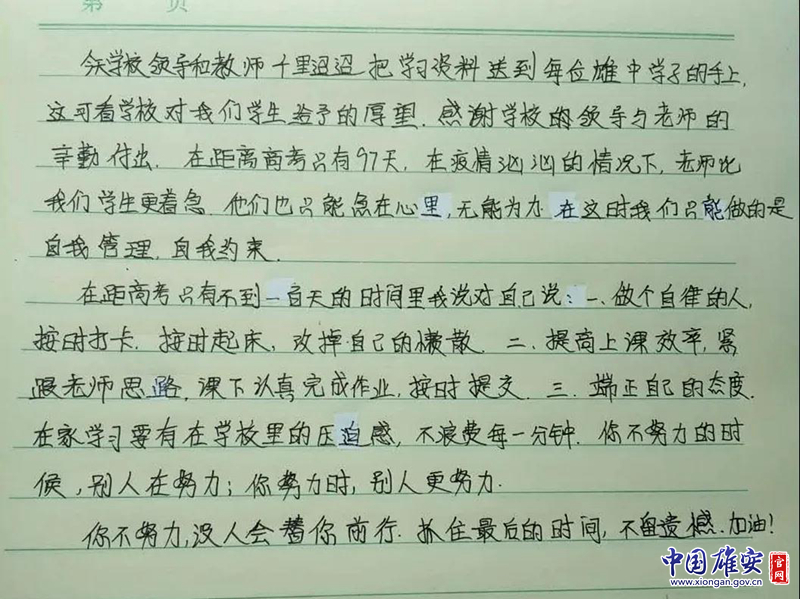 第 页
今天学校领导和教师千里迢迢把学习资料送到每位雄中学子的手上,
这可看学校对我们学生给予的厚望.感谢学校的领导与老师的
辛勤付出.在距离高考只有97天,在疫情汹汹的情况下,老师比
我们学生更着急.他们也只能急在心里,无能为力.在这时我们只能做的是
自我管理,自我约束.
在距高考只有不到一百天的时间里我说对自己说:一、做个自律的人,
按时打卡.按时起床,改掉自己的懒散.二、提高上课效率,紧
跟老师思路,课下认真完成作业,按时提交.三、端正自己的态度.
在家学习要有在学校里的压迫感,不浪费每一分钟.你不努力的时
候,别人在努力;你努力时,别人更努力.
你不努力,没人会替你前行.抓住最后的时间,不留遗憾.加油!
中国雄安 官网
www.xiongan.gov.cn